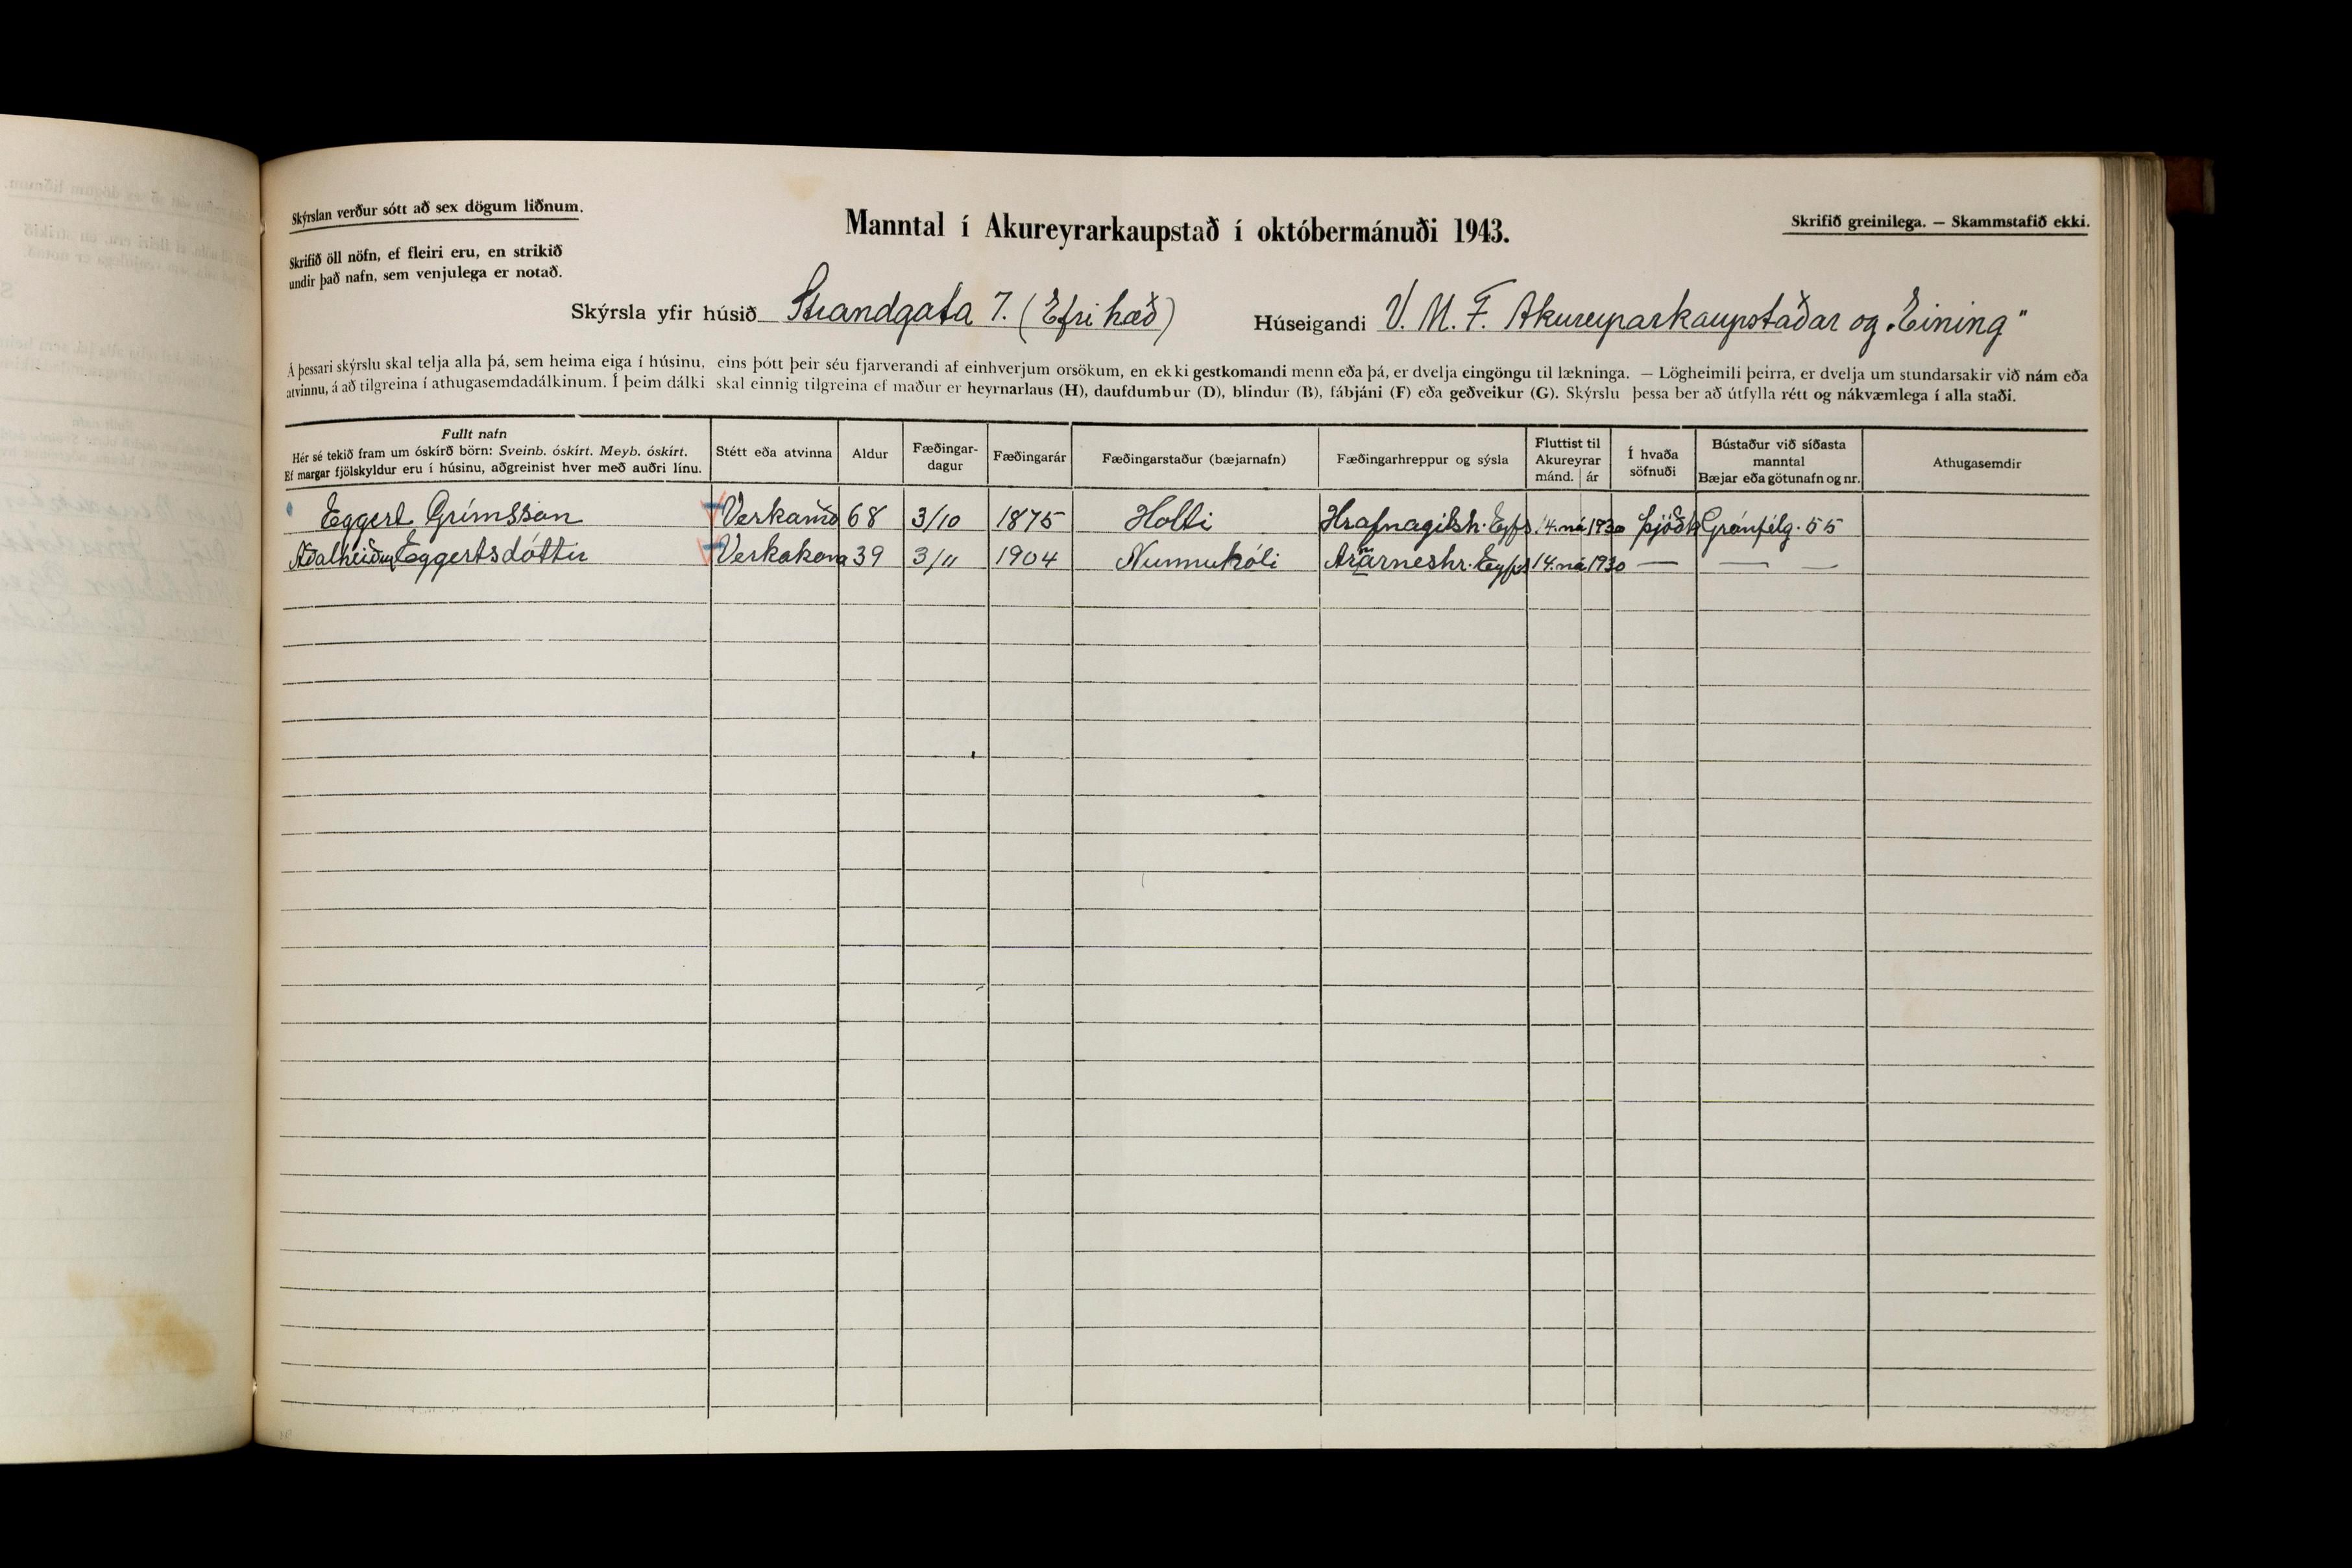 Skýrslan verður sótt að sex dögum liðnum.
Manntal í Akureyrarkaupstað í októbermánuði 1943.
Skrifið greinilega. — Skammstafið ekki.
Skrifið öll nöfn, ef fleiri eru, en strikið
undir það nafn, sem venjulega er notað.
Skýrsla yfir húsið Strandgata 7. (Efri hæð) Húseigandi V. M. F. Akureyrarkaupstaðar og „Eining"
Á þessari skýrslu skal telja alla þá, sem heima eiga í húsinu, eins þótt þeir séu fjarverandi af einhverjum orsökum, en ekki gestkomandi menn eða þá, er dvelja eingöngu til lækninga. — Lögheimili þeirra, er dvelja um stundarsakir við nám eða
atvinnu, á að tilgreina í athugasemdadálkinum. Í þeim dálki skal einnig tilgreina ef maður er heyrnarlaus (H), daufdumbur (D), blindur (B), fábjáni (F) eða geðveikur (G). Skýrslu þessa ber að útfylla rétt og nákvæmlega í alla staði.
Fullt nafn
Hér sé tekið fram um óskírð börn: Sveinb. óskírt. Meyb. óskírt.
Ef margar fjölskyldur eru í húsinu, aðgreinist hver með auðri línu.
Stétt eða atvinna
Aldur
Fæðingar-
dagur
Fæðingarár
Fæðingarstaður (bæjarnafn)
Fæðingarhreppur og sýsla
Fluttist til
Akureyrar
mánd. ár
Í hvaða
söfnuði
Bústaður við síðasta
manntal
Bæjar eða götunafn og nr.
Athugasemdir
Eggert Grímsson Verkamð 68 3/10 1875 Holti Hrafnagilsh. Eyfs 14. maí 1930 þjóðk Gránfélg. 55
Aðalheiður Eggertsdóttir Verkakona 39 3/11 1904 Nunnuhóli Arnarneshr. Eyfs 14. maí 1930 — — —